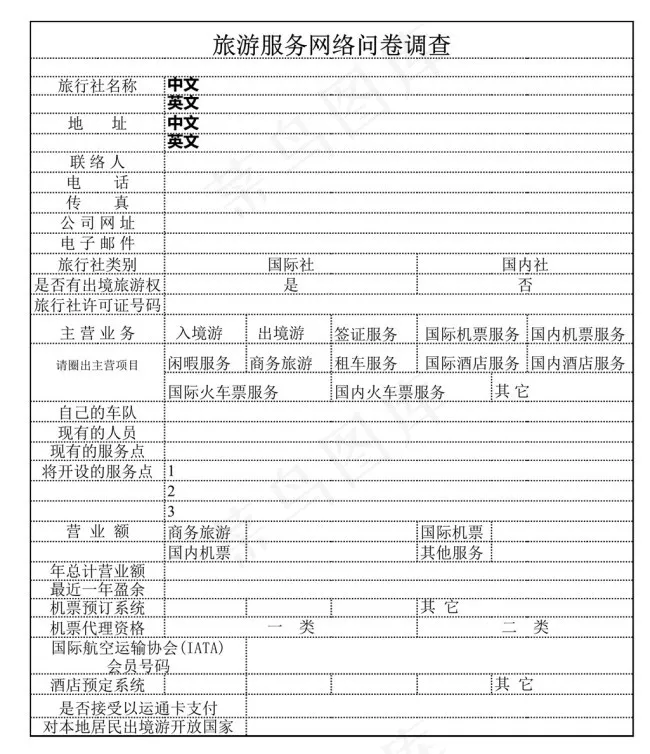 旅游服务网络问卷调查
旅行社名称 中文
英文
地 址 中文
英文
联络人
电 话
传 真
公司网址
电子邮件
旅行社类别 国际社 国内社
是否有出境旅游权 是 否
旅行社许可证号码
主营业务 入境游 出境游 签证服务 国际机票服务 国内机票服务
请圈出主营项目 闲暇服务 商务旅游 租车服务 国际酒店服务 国内酒店服务
国际火车票服务 国内火车票服务 其它
自己的车队
现有的人员
现有的服务点
将开设的服务点 1
2
3
营业额 商务旅游 国际机票
国内机票 其他服务
年总计营业额
最近一年盈余
机票预订系统 其它
机票代理资格 一 类 二 类
国际航空运输协会(IATA)
会员号码
酒店预定系统 其它
是否接受以运通卡支付
对本地居民出境游开放国家
菜鸟图库
菜鸟图库